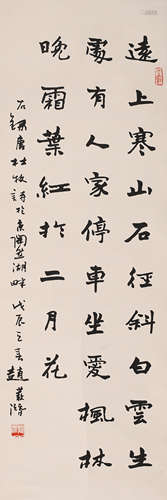 遠上寒山石徑斜白雲生
處有人家停車坐愛楓林
晚霜葉紅於二月花
右錄唐杜牧詩於京陶然湖畔 戊辰之春 趙